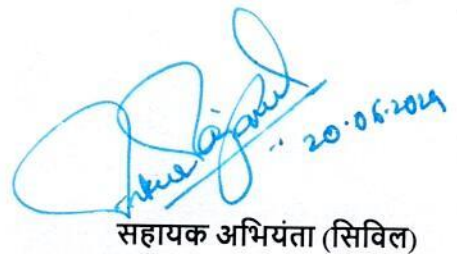 20.06.2024
सहायक अभियंता (सिविल)